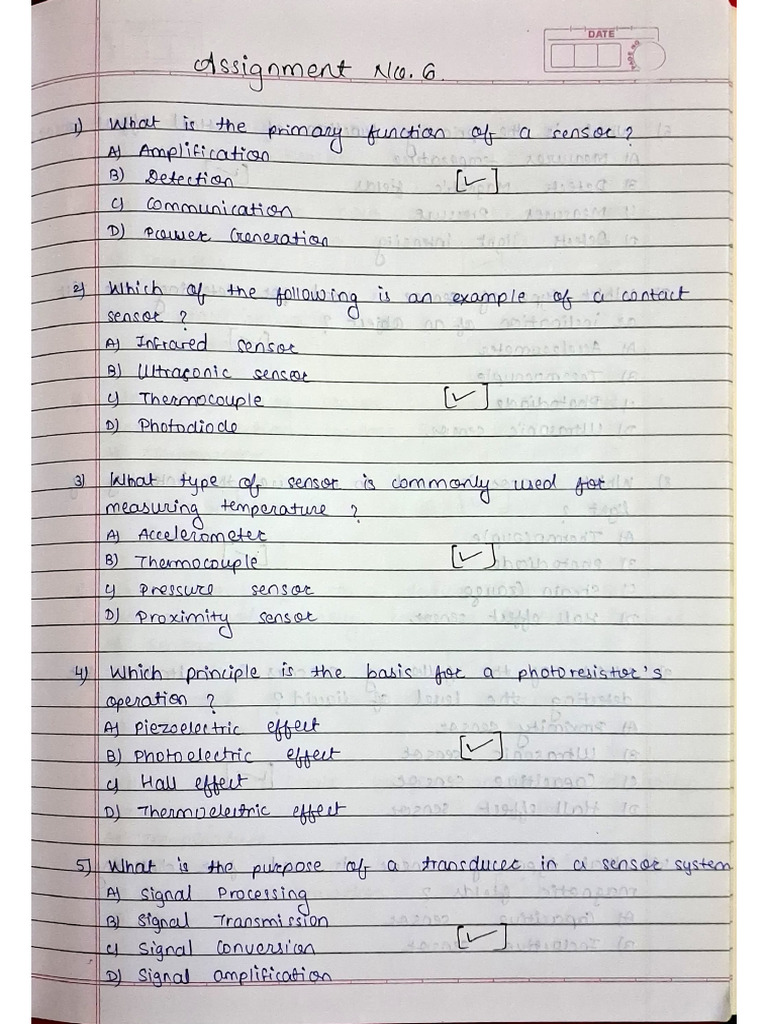 DATE
PAGE NO.
Assignment No. 6
1) What is the primary function of a sensor?
A) Amplification
B) Detection [✓]
C) Communication
D) Power Generation
2) Which of the following is an example of a contact
sensor ?
A) Infrared sensor
B) Ultrasonic sensor
C) Thermocouple [✓]
D) Photodiode
3) What type of sensor is commonly used for
measuring temperature ?
A) Accelerometer
B) Thermocouple [✓]
C) Pressure sensor
D) Proximity sensor
4) Which principle is the basis for a photoresistor's
operation ?
A) Piezoelectric effect
B) Photoelectric effect [✓]
C) Hall effect
D) Thermoelectric effect
5) What is the purpose of a transducer in a sensor system
A) Signal Processing
B) Signal Transmission
C) Signal Conversion [✓]
D) Signal amplification